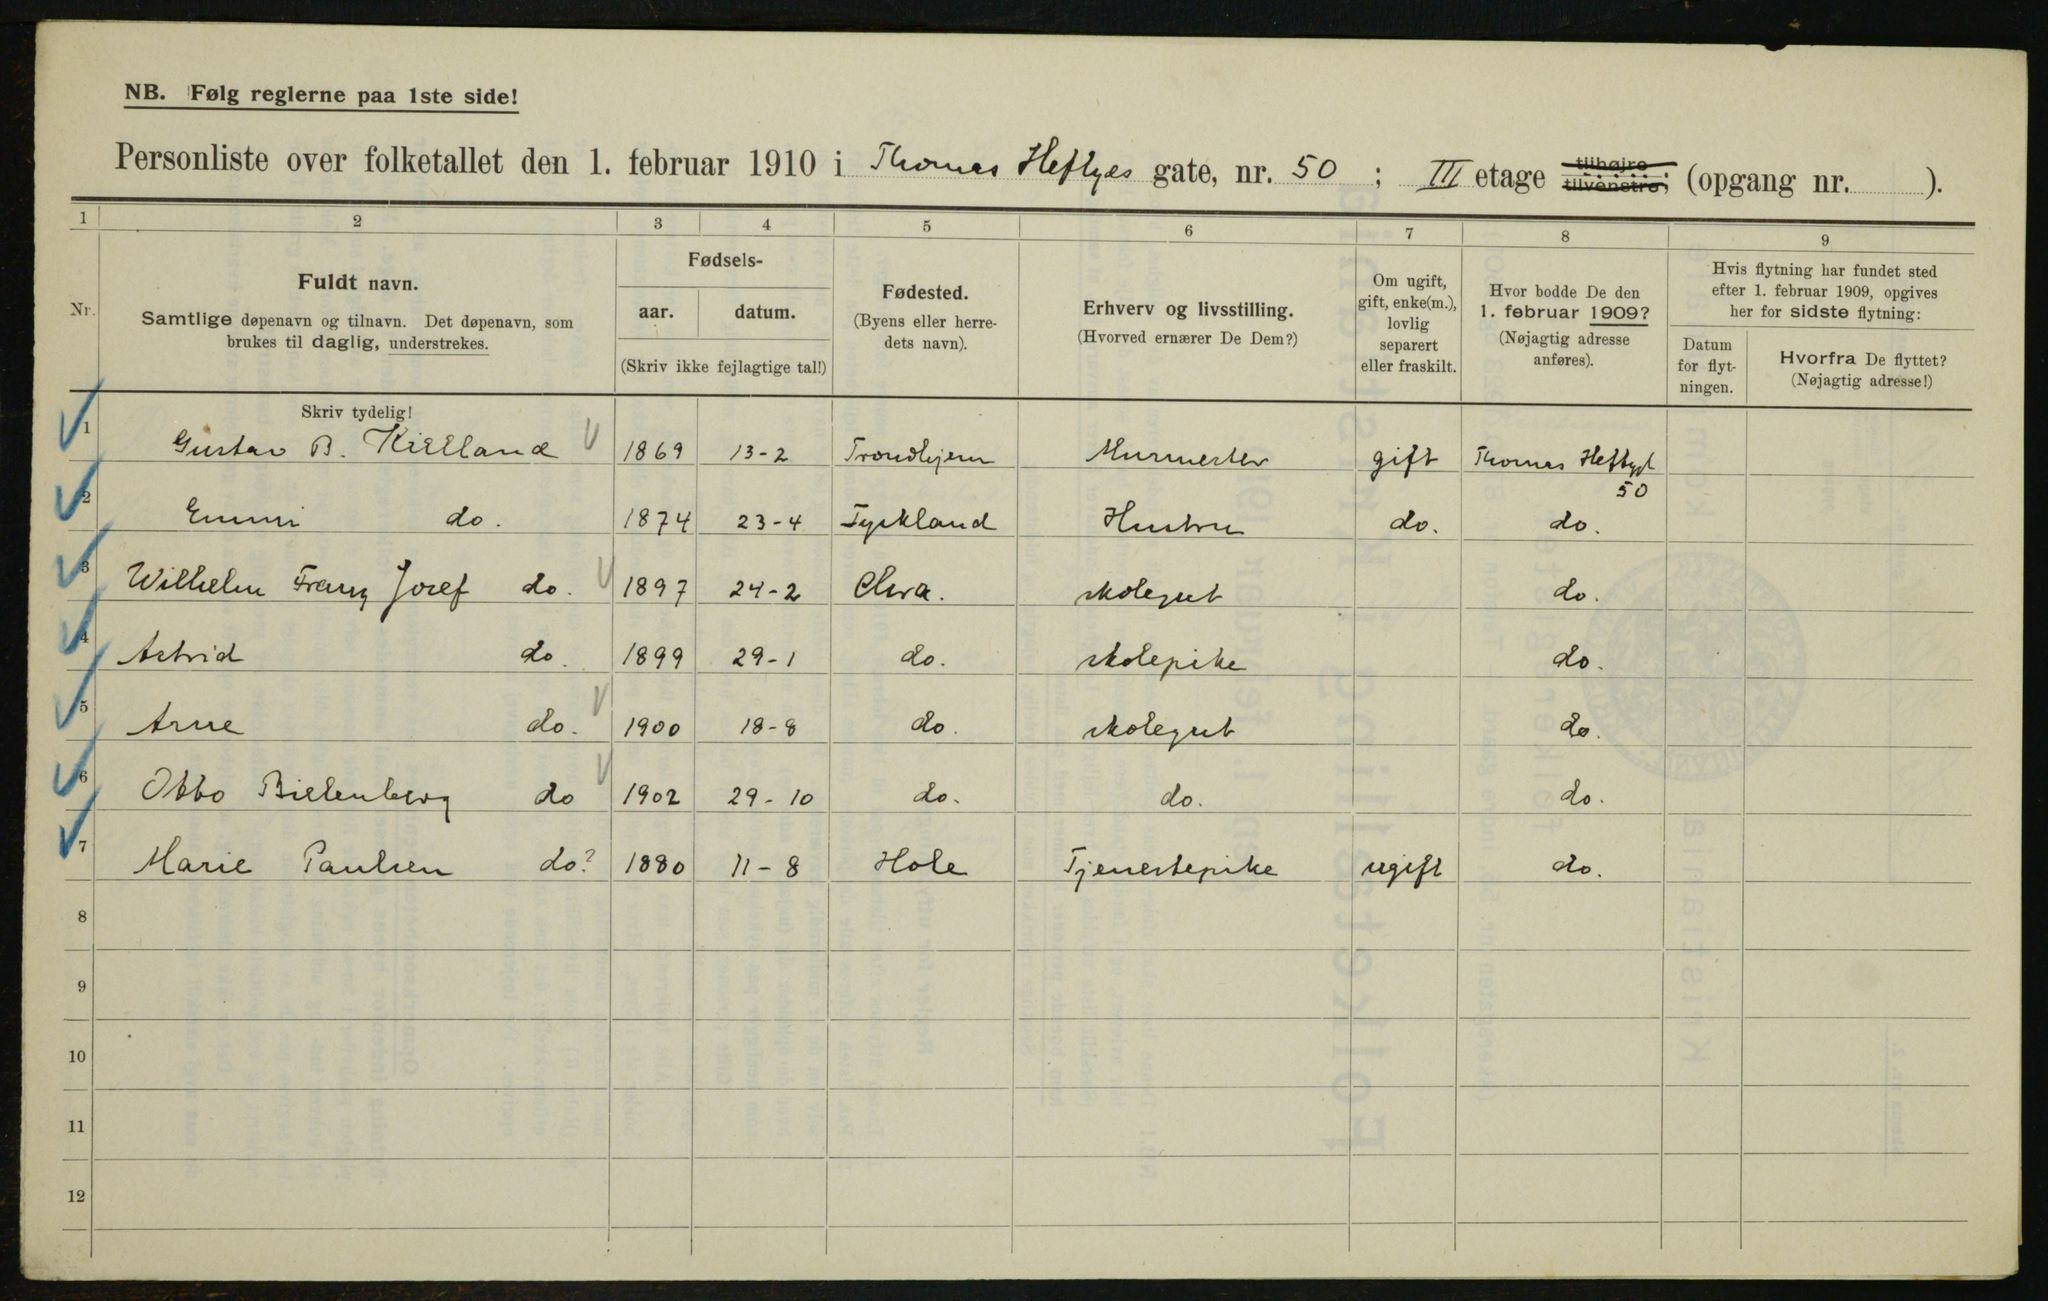 NB. Følg reglerne paa 1ste side!
Personliste over folketallet den 1. februar 1910 i Thomas Heftyes gate, nr. 50 ; III etage tilhøjre tilvenstre; (opgang nr. ).
1 2 3 4 5 6 7 8 9
Nr.
Fuldt navn.
Samtlige døpenavn og tilnavn. Det døpenavn, som
brukes til daglig, understrekes.
Fødsels-
aar. datum.
(Skriv ikke fejlagtige tal!)
Fødested.
(Byens eller herre-
dets navn).
Erhverv og livsstilling.
(Hvorved ernærer De Dem?)
Om ugift,
gift, enke(m.),
lovlig
separert
eller fraskilt.
Hvor bodde De den
1. februar 1909?
(Nøjagtig adresse
anføres).
Hvis flytning har fundet sted
efter 1. februar 1909, opgives
her for sidste flytning:
Datum
for flyt-
ningen.
Hvorfra De flyttet?
(Nøjagtig adresse!)
Skriv tydelig!
1 Gustav B. Kielland 1869 13-2 Trondhjem Murmester gift Thomas Heftygt 50
2 Emmi do. 1874 23-4 Tyskland Hustru do. do.
3 Wilhelm Franz Josef do. 1897 24-2 Chra. skolegut do.
4 Astrid do. 1899 29-1 do. skolepike do.
5 Arne do. 1900 18-8 do. skolegut do.
6 Otto Bielenberg do 1902 29-10 do. do. do.
7 Marie Paulsen do? 1880 11-8 Hole Tjenestepike ugift do.
8
9
10
11
12